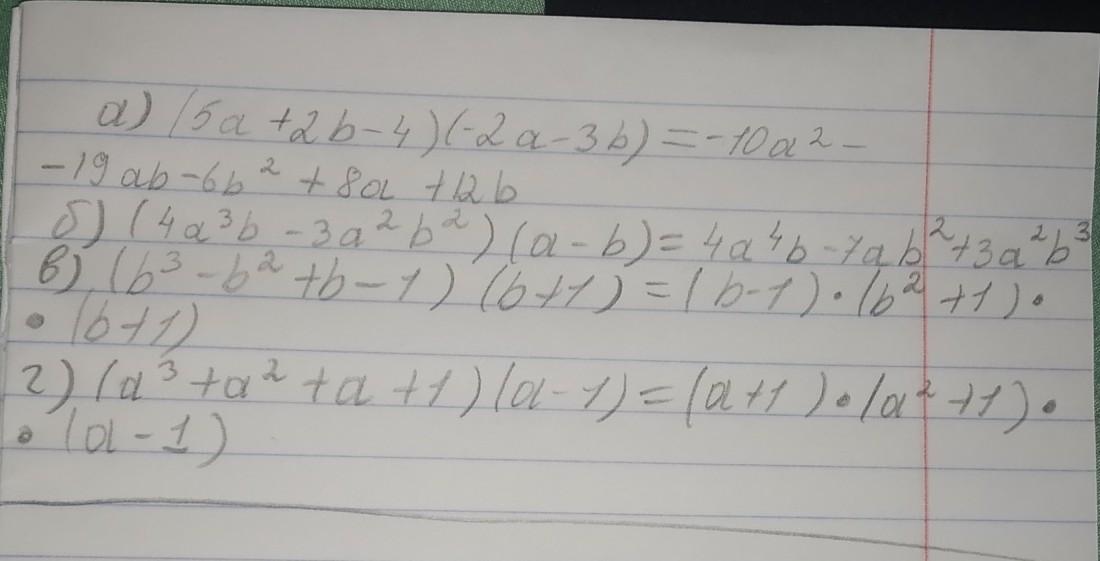 а) (5a + 2b - 4)(-2a - 3b) = -10a² -
-19ab - 6b² + 8a + 12b
б) (4a³b - 3a²b²)(a - b) = 4a⁴b - 7ab² + 3a²b³
в) (b³ - b² + b - 1) (b + 1) = (b - 1) • (b² + 1) •
• (b + 1)
г) (a³ + a² + a + 1)(a - 1) = (a + 1) • (a² + 1) •
• (a - 1)